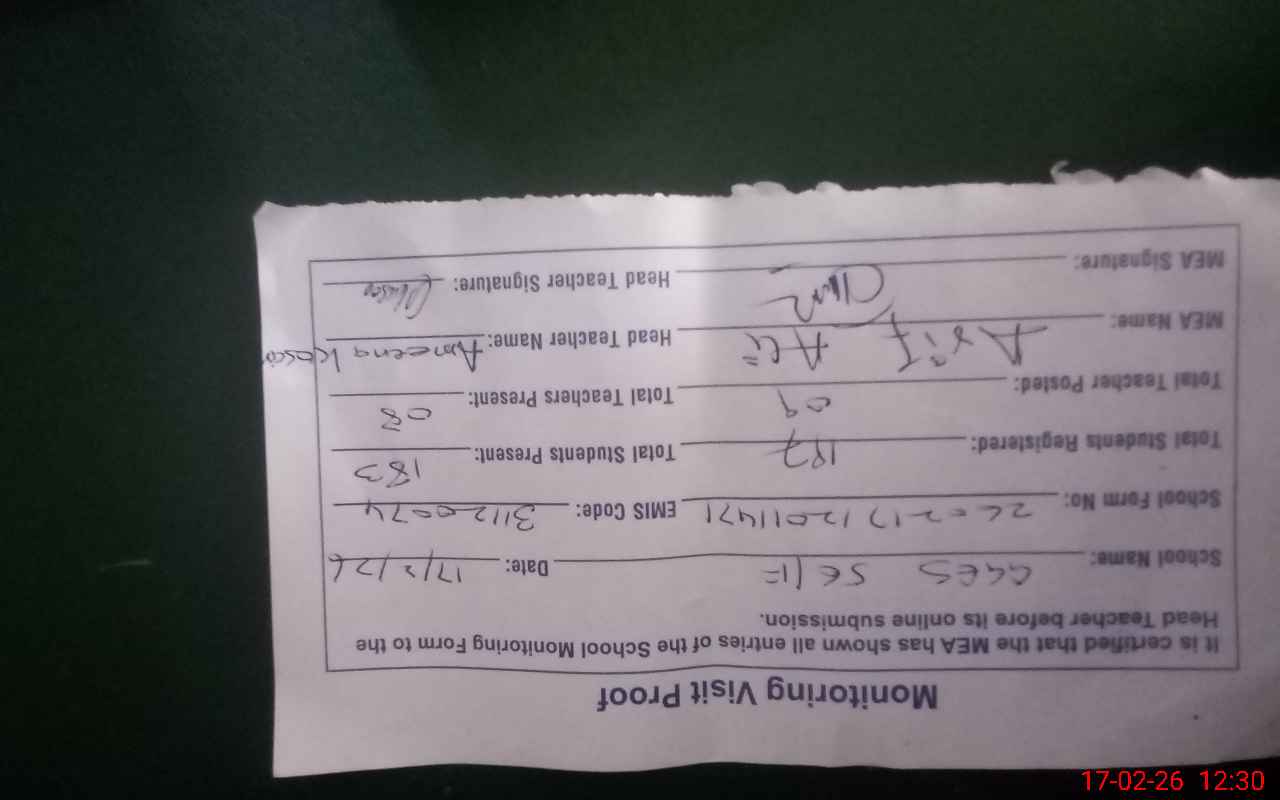 Monitoring Visit Proof
It is certified that the MEA has shown all entries of the School Monitoring Form to the
Head Teacher before its online submission.
School Name: GGES 5E/1F Date: 17/2/26
School Form No: 26021712011471 EMIS Code: 31120074
Total Students Registered: 187 Total Students Present: 183
Total Teacher Posted: 09 Total Teachers Present: 08
MEA Name: Asif Ali Head Teacher Name: Ameena Kosar
MEA Signature: Head Teacher Signature:
17-02-26 12:30